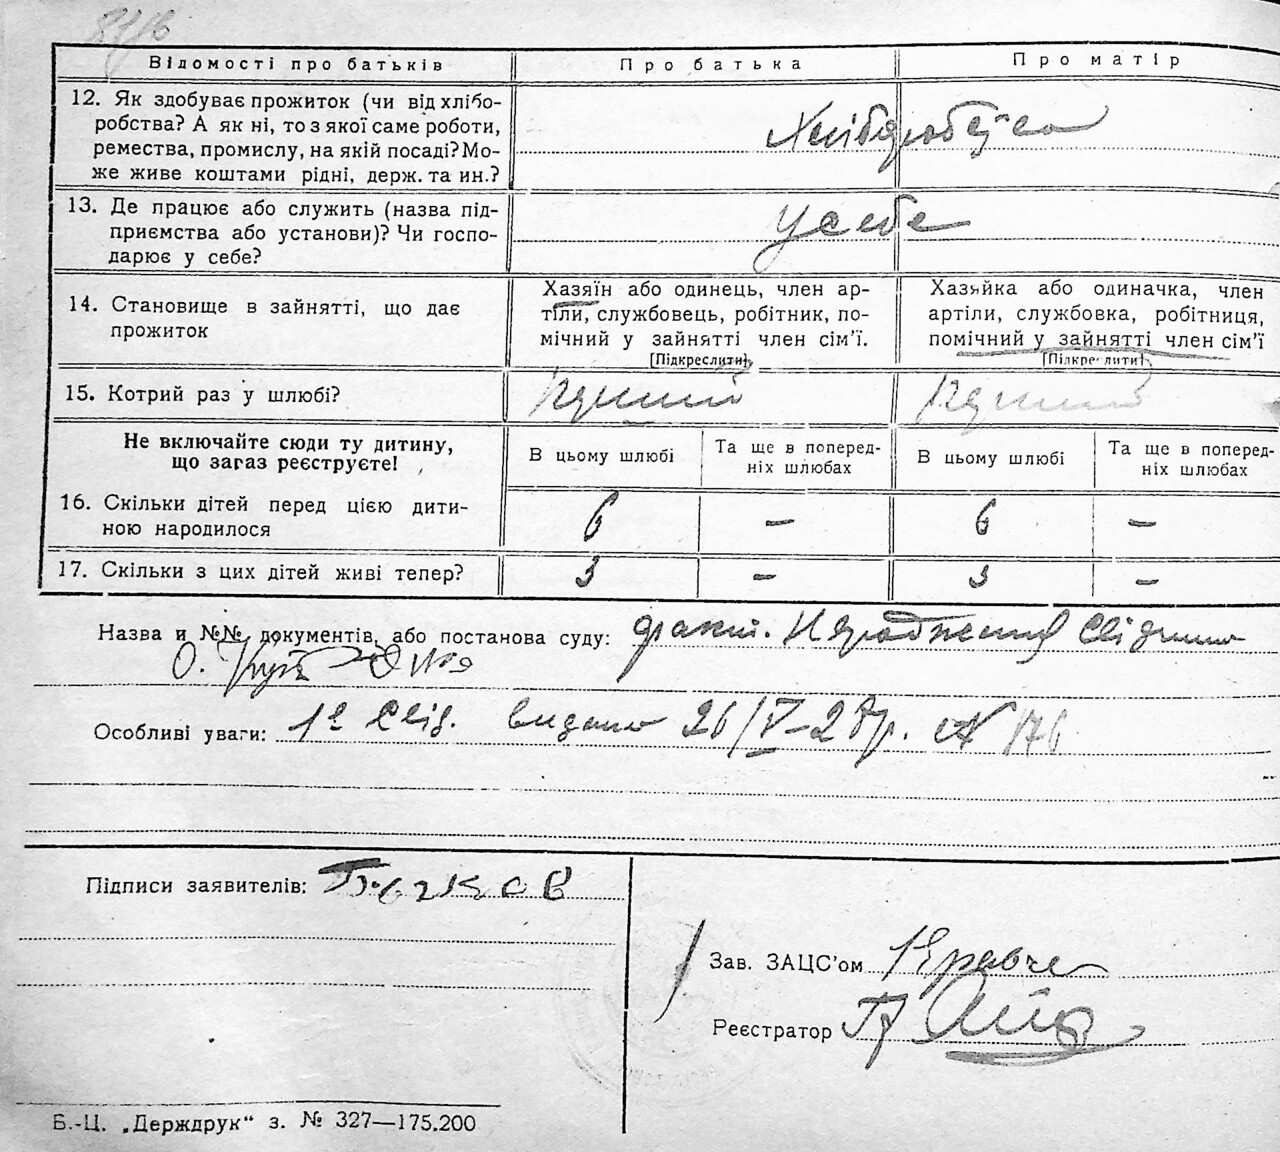 Відомості про батьків
Про батька
Про матір
12. Як здобуває прожиток (чи від хлібо-
робства? А як ні, то з якої саме роботи,
ремества, промислу, на якій посаді? Мо-
же живе коштами рідні, держ. та ин.?
Хліборобство
13. Де працює або служить (назва під-
приємства або установи)? Чи госпо-
дарює у себе?
У себе
14. Становище в зайнятті, що дає
прожиток
Хазяїн або одинець, член ар-
тіли, службовець, робітник, по-
мічний у зайнятті член сім'ї.
[Підкреслити]
Хазяйка або одиначка, член
артіли, службовка, робітниця,
помічний у зайнятті член сім'ї
[Підкреслити]
15. Котрий раз у шлюбі?
Не включайте сюди ту дитину,
що загаз реєструєте!
В цьому шлюбі
Та ще в поперед-
ніх шлюбах
В цьому шлюбі
Та ще в поперед-
ніх шлюбах
16. Скільки дітей перед цією дити-
ною народилося
6 — 6 —
17. Скільки з цих дітей живі тепер?
3 — 3 —
Назва и №№ документів, або постанова суду:
Особливі уваги: видано 26/V-28р. № 176
Підписи заявителів: Бычков
Зав. ЗАЦС'ом
Реєстратор
Б.-Ц. „Держдрук" з. № 327—175.200